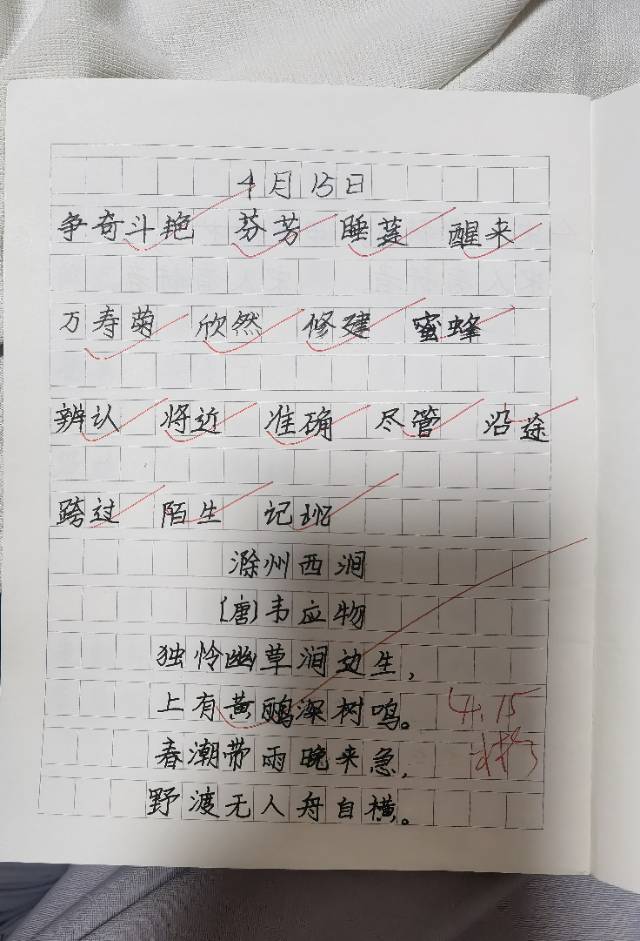 4月15日
争奇斗艳 芬芳 睡莲 醒来
万寿菊 欣然 修建 蜜蜂
辨认 将近 准确 尽管 沿途
跨过 陌生 记
滁州西涧
(唐)韦应物
独怜幽草涧边生，
上有黄鹂深树鸣。
春潮带雨晚来急，
野渡无人舟自横。
4.15